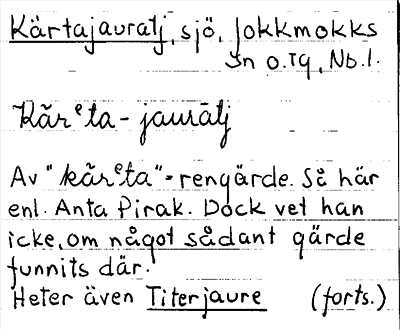 Kärtajauratj, sjö, Jokkmokks
sn o. tg, Nb. l.
Kãrᵉta - jaurātj
Av "kãrᵉta" = rengärde. Så här
enl. Anta Pirak. Dock vet han
icke, om något sådant gärde
funnits där.
Heter även Titerjaure (forts.)